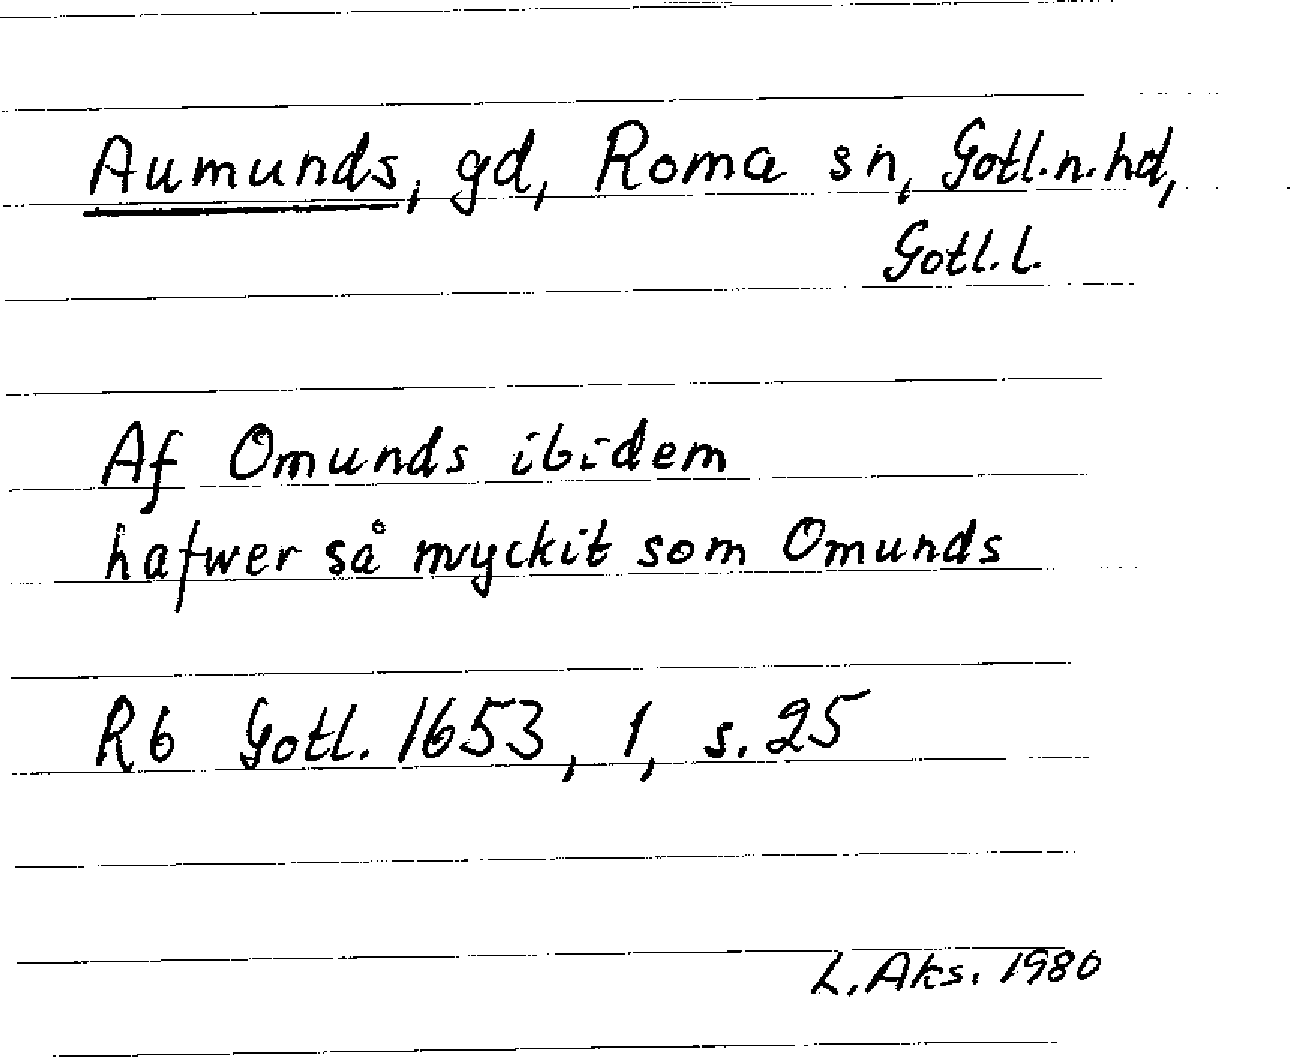 Aumunds, gd, Roma sn, Gotl.n.hd,
Gotl.l.
Af Omunds ibidem
hafwer så myckit som Omunds
Rb Gotl. 1653, 1, s. 25
L. Aks. 1980